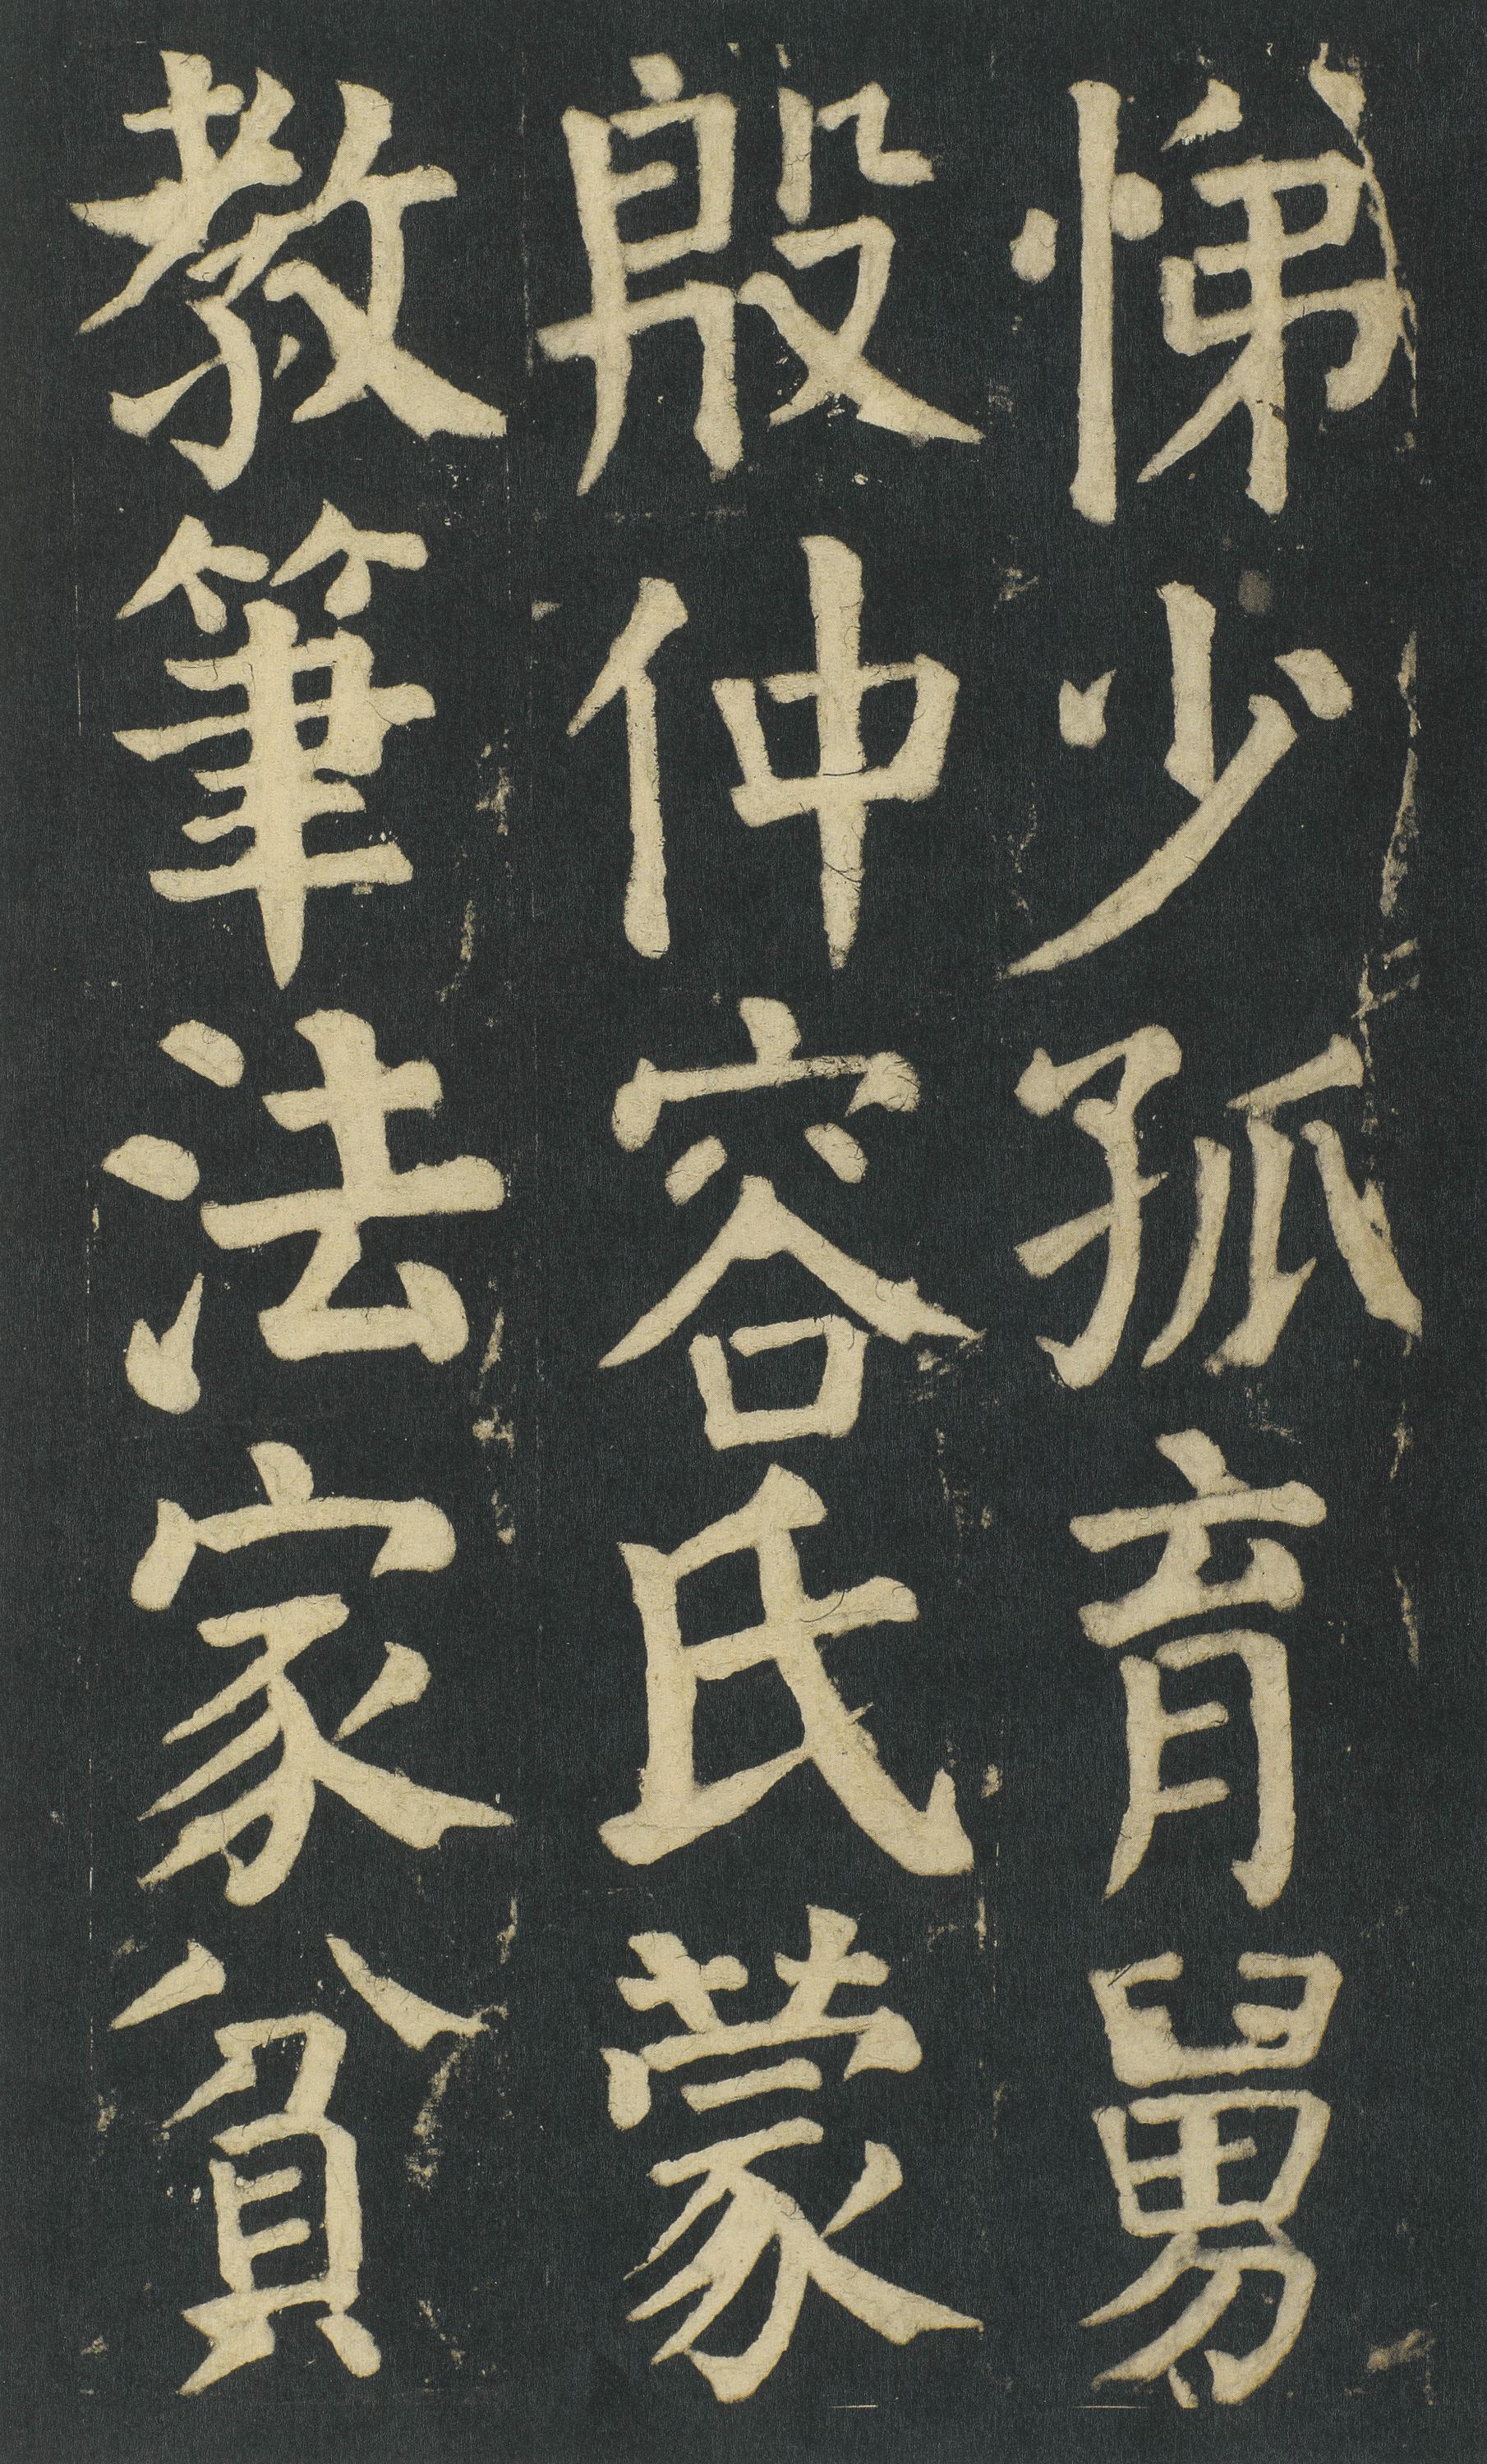 悌少孤育舅
殷仲容氏蒙
教筆法家貧